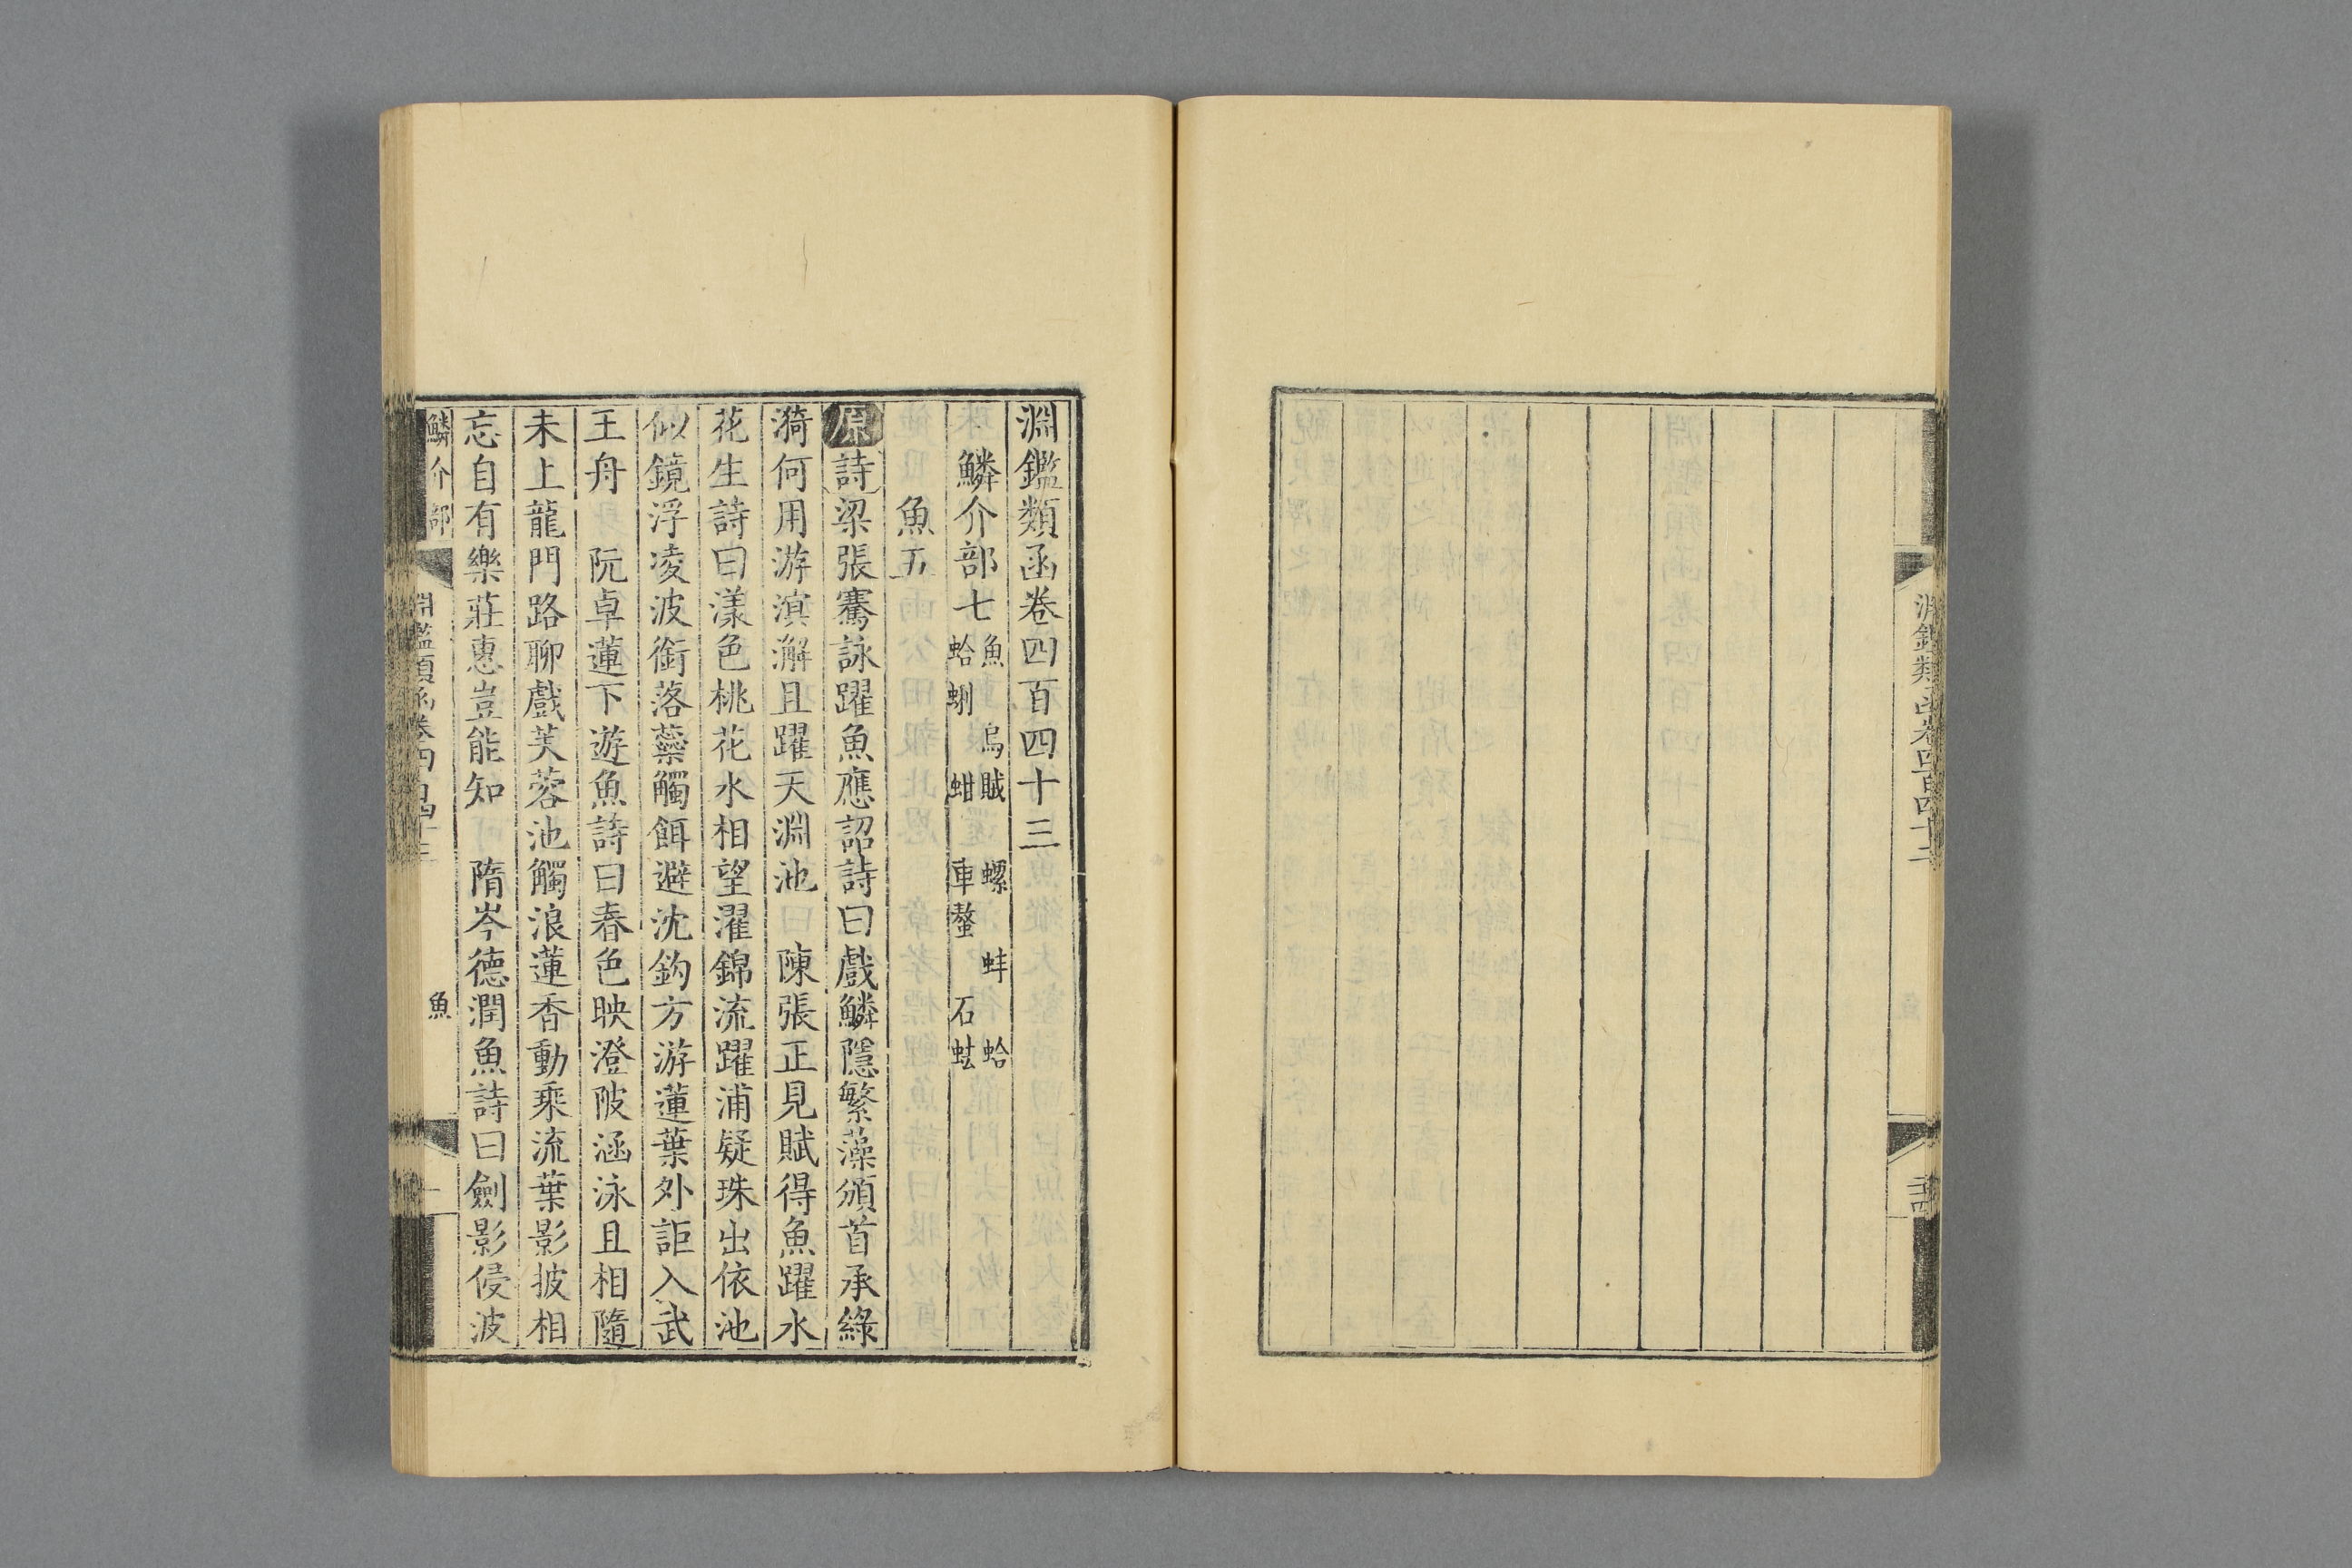 淵鑑類函卷四百四十二
二十四
淵鑑類函卷四百四十三
鱗介部七
魚 烏賊 螺 蚌 蛤
蛤蜊 蚶 車螯 石蚨
魚五
原詩梁張騫詠躍魚應詔詩曰戲鱗隱繁藻頒首承綠
漪何用游溟澥且躍天淵池 陳張正見賦得魚躍水
花生詩曰漾色桃花水相望濯錦流躍浦疑珠出依池
似鏡浮凌波銜落蘂觸餌避沈鈎方游蓮葉外詎入武
王舟 阮卓蓮下遊魚詩曰春色映澄陂涵泳且相隨
未上龍門路聊戲芙蓉池觸浪蓮香動乘流葉影披相
忘自有樂莊惠豈能知 隋岑德潤魚詩曰劍影侵波
鱗介部
淵鑑類函卷四百四十三
魚
一